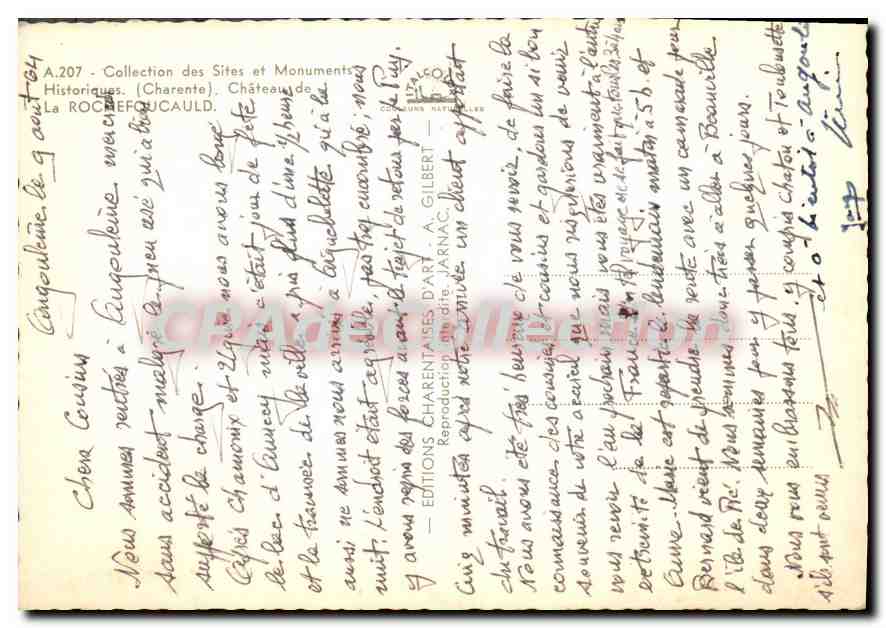 A.207 - Collection des Sites et Monuments
Historiques. (Charente). Château de
La ROCHEFOUCAULD.
ITALCOLOR
COULEURS NATURELLES
— EDITIONS CHARENTAISES D'ART - A. GILBERT —
Reproduction interdite. JARNAC.
CPAdeCollection
Angoulême le 9 août 64
Chers Cousins
Nous sommes rentrés à Angoulême mercredi
sans accident malgré le pneu usé qui a bien
supporté la charge.
Après Chamonix et que nous avons
le lac d'Annecy mais c'était jour de fête
et la traversée de la ville a pris plus d'une 1/2 heure
aussi ne sommes nous arrivés à qu'à la
nuit. L'endroit était agréable, pas très encombré; nous
y avons repris des forces avant le trajet de retour par le Puy.
Cinq minutes après notre arrivée un client apportait
du travail.
Nous avons été très heureux de vous revoir, de faire la
connaissance des cousins et gardons un si bon
souvenir de votre accueil que nous espérons
vous revoir l'an prochain mais vous êtes vraiment à l'autre
extrémité de la France le voyage
Anne-Marie est repartie le lendemain matin à 5h et
Bernard vient de prendre la route avec un camarade pour
l'île de Ré. Nous sommes donc à aller à
dans deux semaines pour y passer quelques jours.
Nous vous embrassons tous, y compris Chaton et
s'ils sont venus
et à bientôt à Angoulême